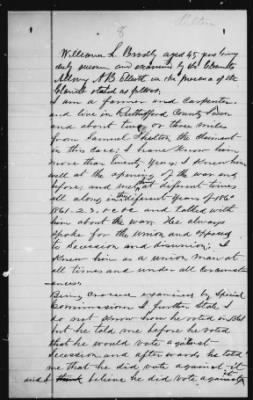 Shelton
William L. Brosby aged 45 yrs being
duly sworn and examined by the Claimants
Attorney A B Elliott in the presence of the
Claimant states as follows.
I am a farmer and Carpenter
and live in Rutherford County Tenn
and about two or three miles
from Samuel Shelton the claimant
in this case; I have known him
more than twenty years; I knew him
well at the opening of the war and
before, and met at different times
all along in the different years of
1861. 2. 3. &c &c and talked with
him about the war. He always
spoke for the Union and opposed
to secession and disunion; I
knew him as a union man at
all times and under all circumst-
ances.
Being cross examined by Special
Commissioner, I further state I
do not know how he voted in 1861
but he told me before he voted
that he would vote against
secession and afterwards he told
me that he did vote against it
and I believe he did vote against it